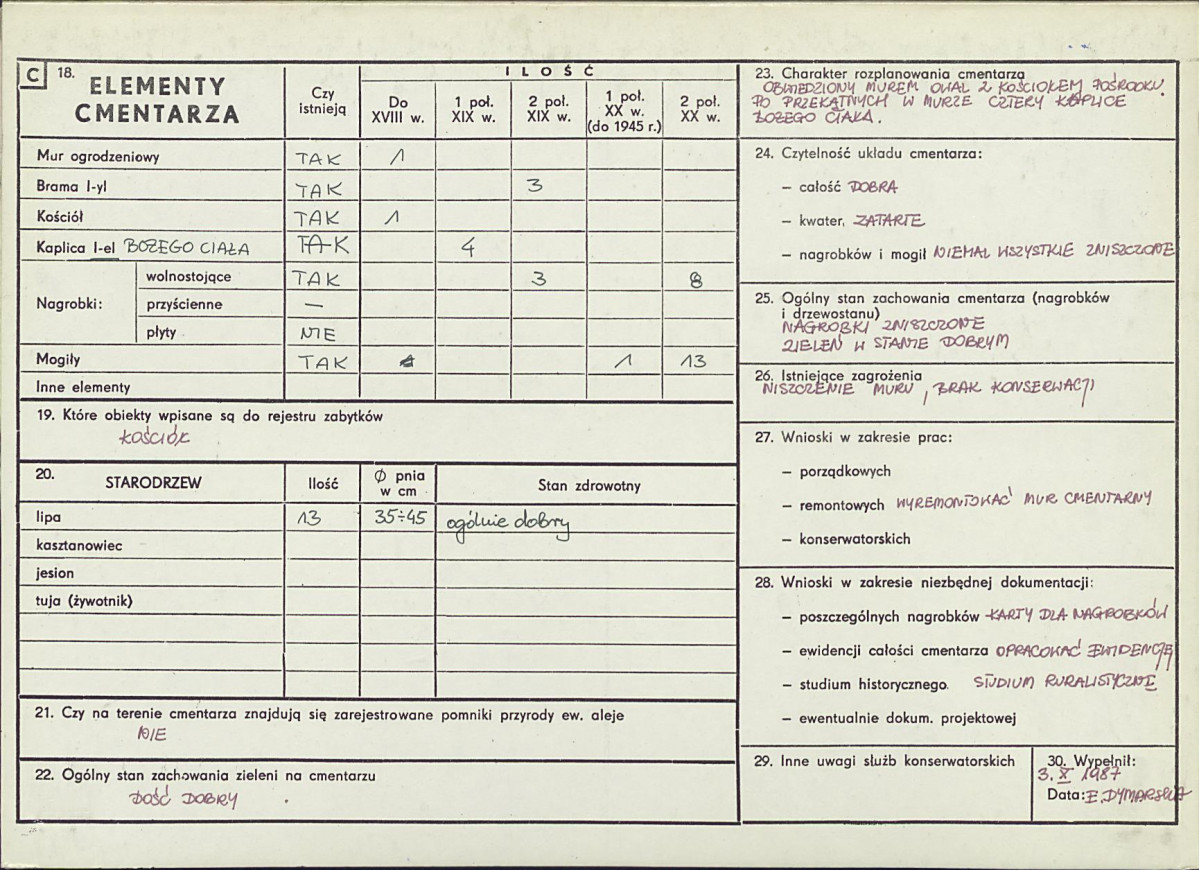 C 18. ELEMENTY CMENTARZA
Czy istnieją
ILOŚĆ
Do XVIII w.
1 poł. XIX w.
2 poł. XIX w.
1 poł. XX w. (do 1945 r.)
2 poł. XX w.
Mur ogrodzeniowy TAK 1
Brama I-yl TAK 3
Kościół TAK 1
Kaplica I-el BOŻEGO CIAŁA TAK 4
Nagrobki:
wolnostojące TAK 3 8
przyścienne —
płyty NIE
Mogiły TAK 1 13
Inne elementy
19. Które obiekty wpisane są do rejestru zabytków
KOŚCIÓŁ
20. STARODRZEW Ilość Ø pnia w cm Stan zdrowotny
lipa 13 35÷45 ogólnie dobry
kasztanowiec
jesion
tuja (żywotnik)
21. Czy na terenie cmentarza znajdują się zarejestrowane pomniki przyrody ew. aleje
NIE
22. Ogólny stan zachowania zieleni na cmentarzu
DOŚĆ DOBRY
23. Charakter rozplanowania cmentarza
OBWIEDZIONY MUREM OWAL Z KOŚCIOŁEM POŚRODKU.
PO PRZEKĄTNYCH W MURZE CZTERY KAPLICE
BOŻEGO CIAŁA.
24. Czytelność układu cmentarza:
– całość DOBRA
– kwater, ZATARTE
– nagrobków i mogił NIEMAL WSZYSTKIE ZNISZCZONE
25. Ogólny stan zachowania cmentarza (nagrobków
i drzewostanu)
NAGROBKI ZNISZCZONE
ZIELEŃ W STANIE DOBRYM
26. Istniejące zagrożenia
NISZCZENIE MURU, BRAK KONSERWACJI
27. Wnioski w zakresie prac:
– porządkowych
– remontowych WYREMONTOWAĆ MUR CMENTARNY
– konserwatorskich
28. Wnioski w zakresie niezbędnej dokumentacji:
– poszczególnych nagrobków KARTY DLA NAGROBKÓW
– ewidencji całości cmentarza OPRACOWAĆ EWIDENCJĘ
– studium historycznego. STUDIUM RURALISTYCZNE
– ewentualnie dokum. projektowej
29. Inne uwagi służb konserwatorskich
30. Wypełnił:
3. X 1987
Data: E. DYMARSKA